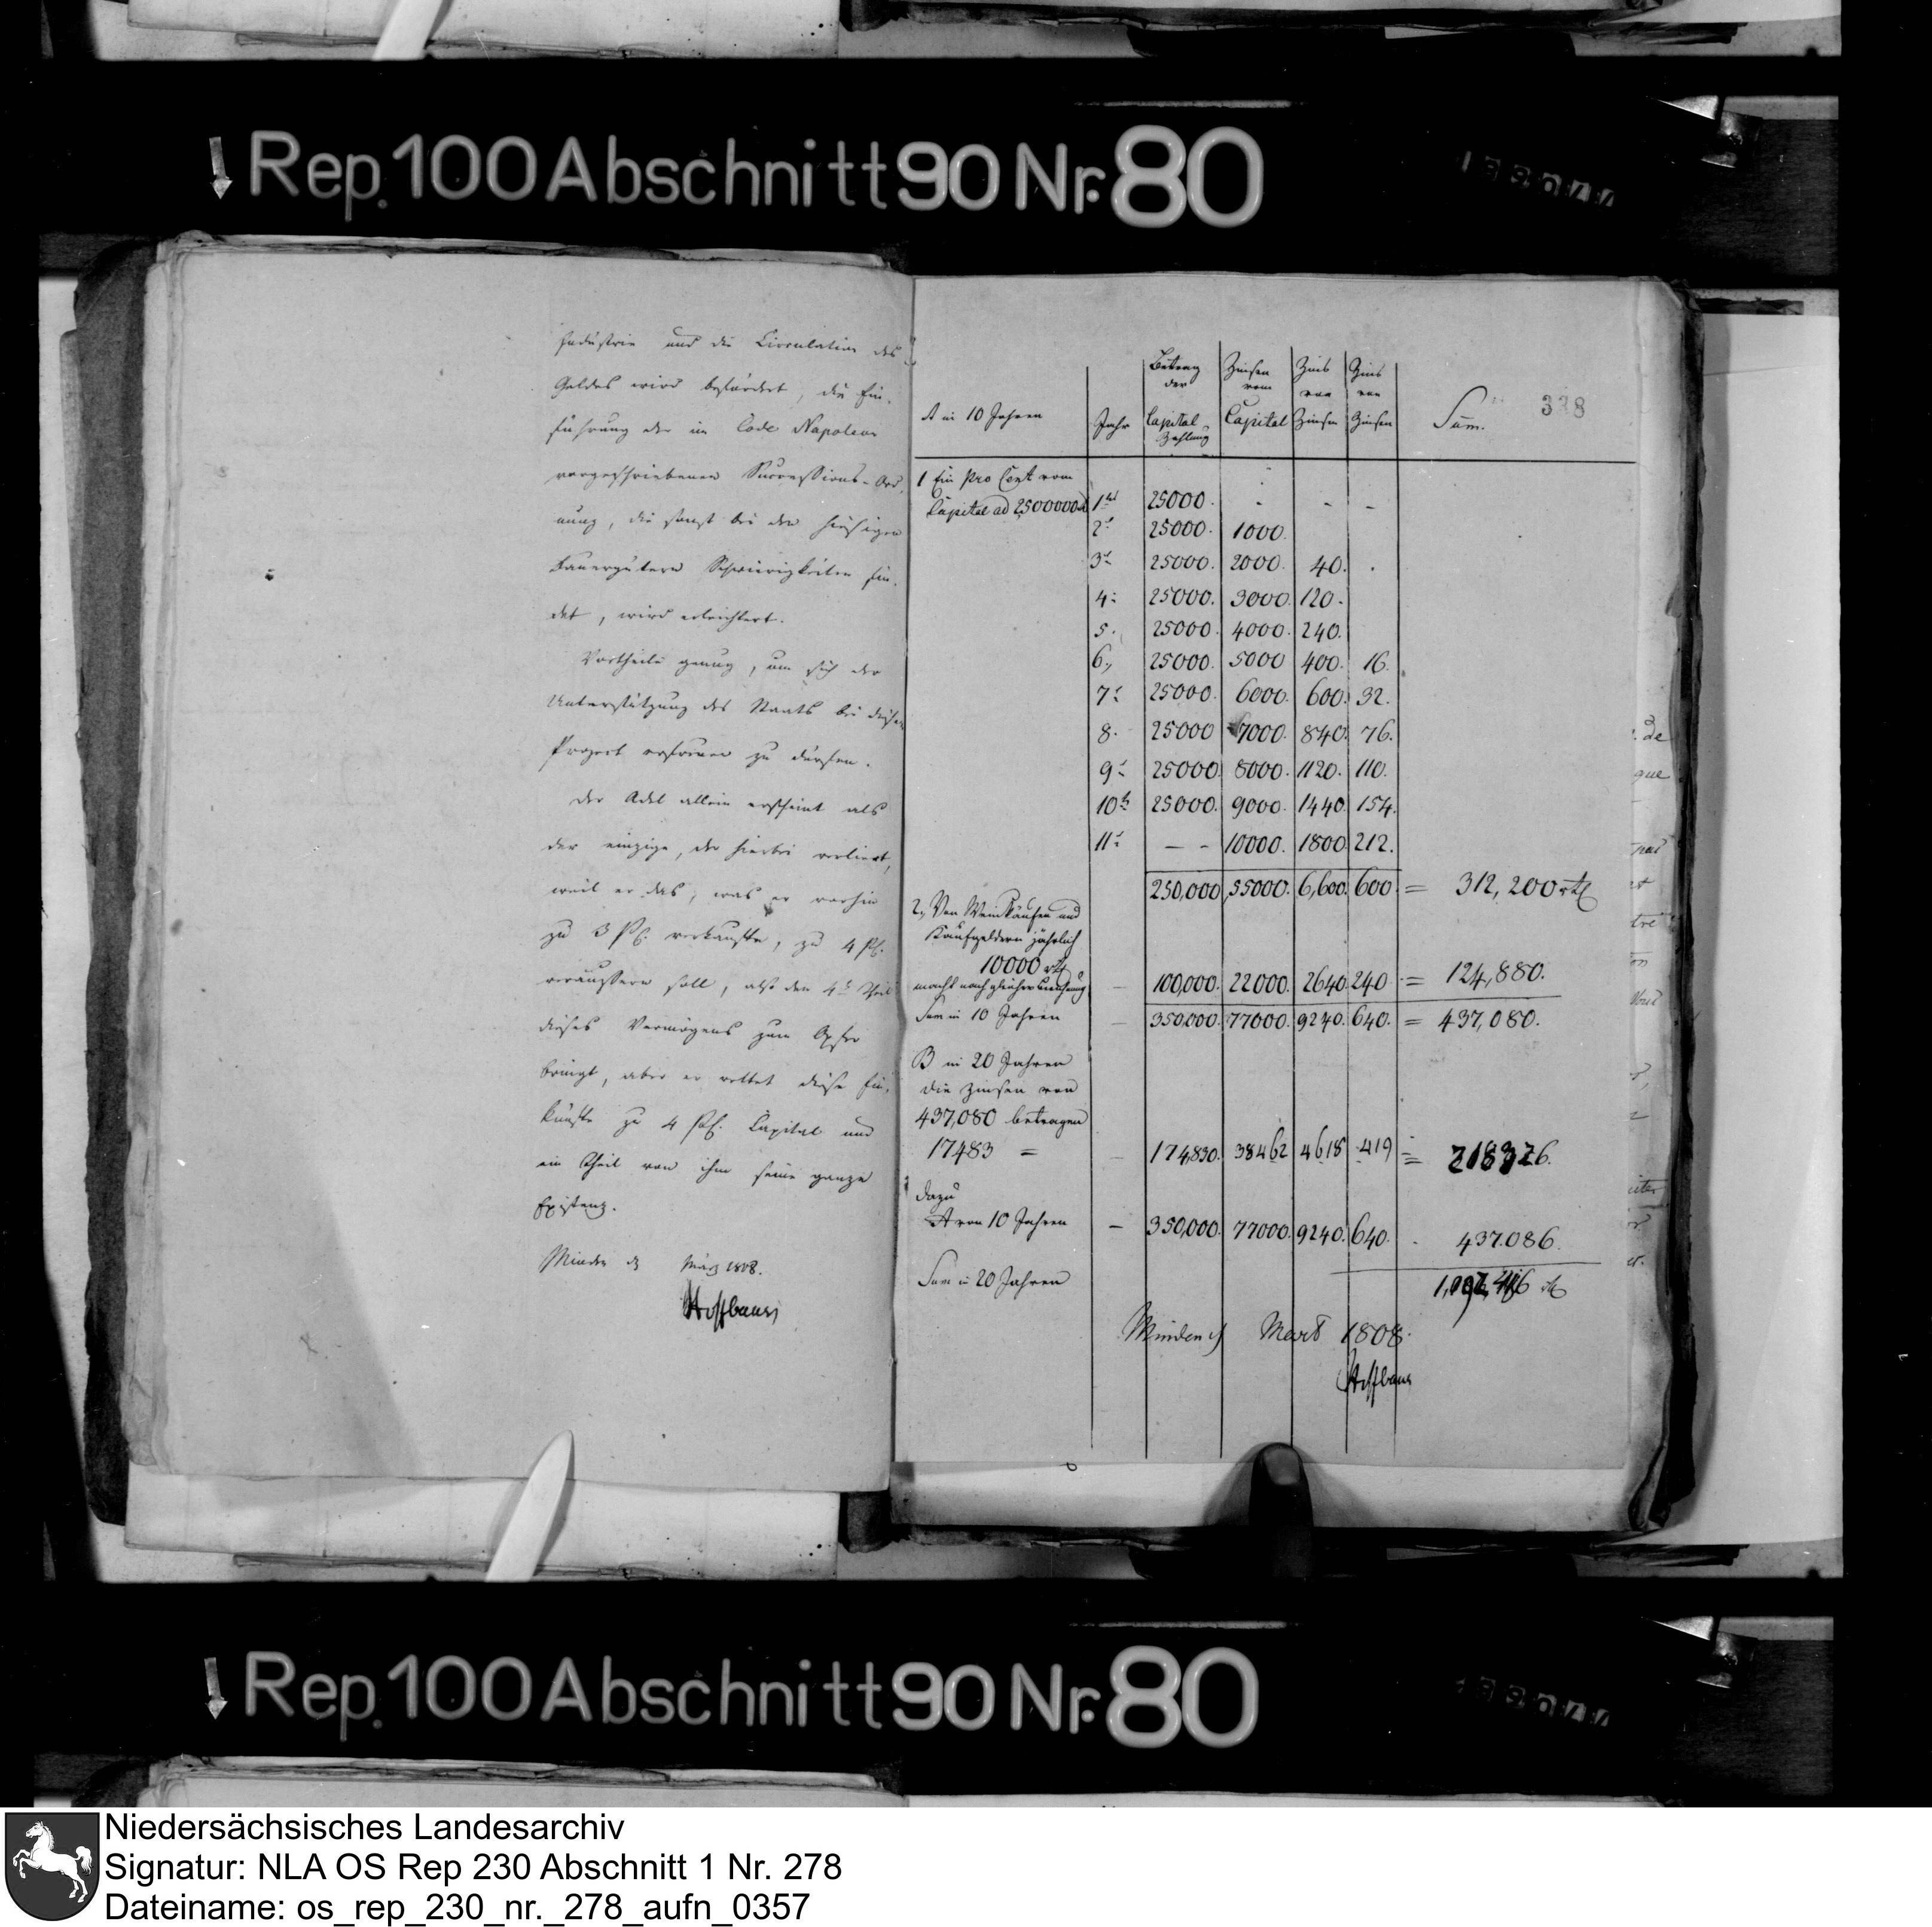 Rep. 100 Abschnitt 90 Nr. 80
Industrie und die Circulation des
Geldes wird befördert, die Ein-
führung der im Code Napoleon
vorgeschriebenen Successions-Ord-
nung, die sonst bei den hiesigen
Bauergütern Schwürigkeiten fin-
det, wird erleichtert.
Vortheile genug, um sich der
Unterstützung des Staats bei diesem
Project erfreuen zu dürfen.
Der Adel allein erscheint als
der einzige, der hierbei verliert,
weil er das, was er vorhin
zu 3 pC. verkaufte, zu 4 pC.
veräussern soll, also den 4t Theil
dieses Vermögens zum Opfer
bringt, aber er rettet diese Ein-
künfte zu 4 pC. Capital und
ein Theil von ihm seine ganze
Existenz.
Minden d März 1808.
Hoffbauer
338
A in 10 Jahren | Jahr | Betrag der Capital Zahlung | Zinsen vom Capital | Zins von Zinsen | Zins von Zinsen | Sum.
1 Ein pro Cent vom
Capital ad 2500000 | 1te | 25000. | - | - | -
2. | 25000. | 1000.
3. | 25000. | 2000. | 40. | .
4. | 25000. | 3000. | 120.
5. | 25000. | 4000. | 240.
6. | 25000. | 5000 | 400. | 16.
7. | 25000. | 6000. | 600. | 32.
8. | 25000 | 7000. | 840. | 76.
9. | 25000. | 8000. | 1120. | 110.
10. | 25000. | 9000. | 1440. | 154.
11. | - - | 10000. | 1800. | 212.
250,000 | 55000. | 6,600. | 600 = 312,200 rtl
2, Von Weinkäufen und
Kaufgeldern jährlich
10000 rtl
macht nach gleicher Berechnung | - | 100,000. | 22000. | 2640. | 240 = 124,880.
Sum in 10 Jahren | - | 350,000. | 77000. | 9240. | 640. = 437,080.
B in 20 Jahren
die Zinsen von
437,080 betragen
17483 = | - | 174,830. | 38462 | 4618 | 419 = 218326.
dazu
A von 10 Jahren | - | 350,000. | 77000. | 9240. | 640. - 437.086.
Sum in 20 Jahren
Minden d Mart 1808.
Hoffbauer
Rep. 100 Abschnitt 90 Nr. 80
Niedersächsisches Landesarchiv
Signatur: NLA OS Rep 230 Abschnitt 1 Nr. 278
Dateiname: os_rep_230_nr._278_aufn_0357